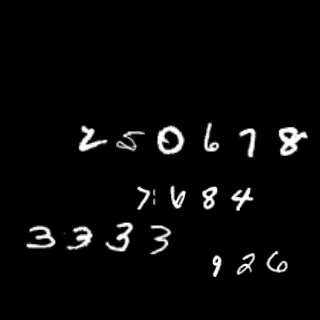 250678
7684
3333
926